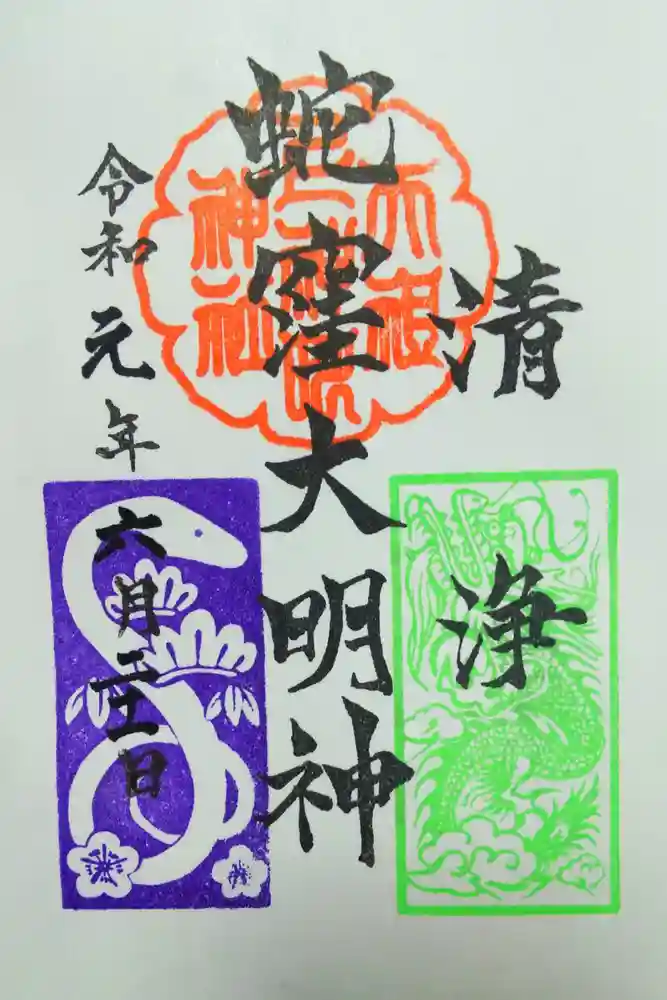 清浄
蛇窪大明神
令和元年六月二十一日
天祖
神社